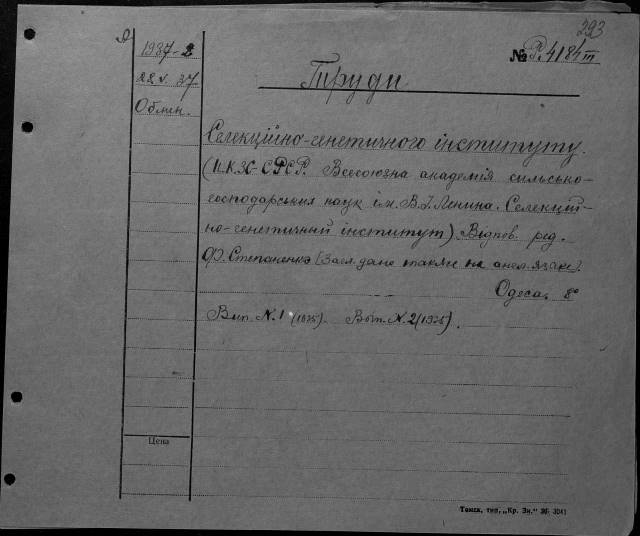 293
1937-2
№ Р. 4184 III
22 V. 37
Труди
Обмен.
Селекційно-генетичного інституту.
(Н.К.З.-СРСР. Всесоюзна академія сильсько-
господарських наук ім. В.І. Ленина. Селекцій-
но-генетичний інститут). Відпов. ред.
Ф. Степаненко [Загл. дано также на англ. языке].
Одеса. 8°
Вип. N. 1 (1935). Вып. N. 2 (1935).
Цена
Томск, тип. „Кр. Зн." 36 3041